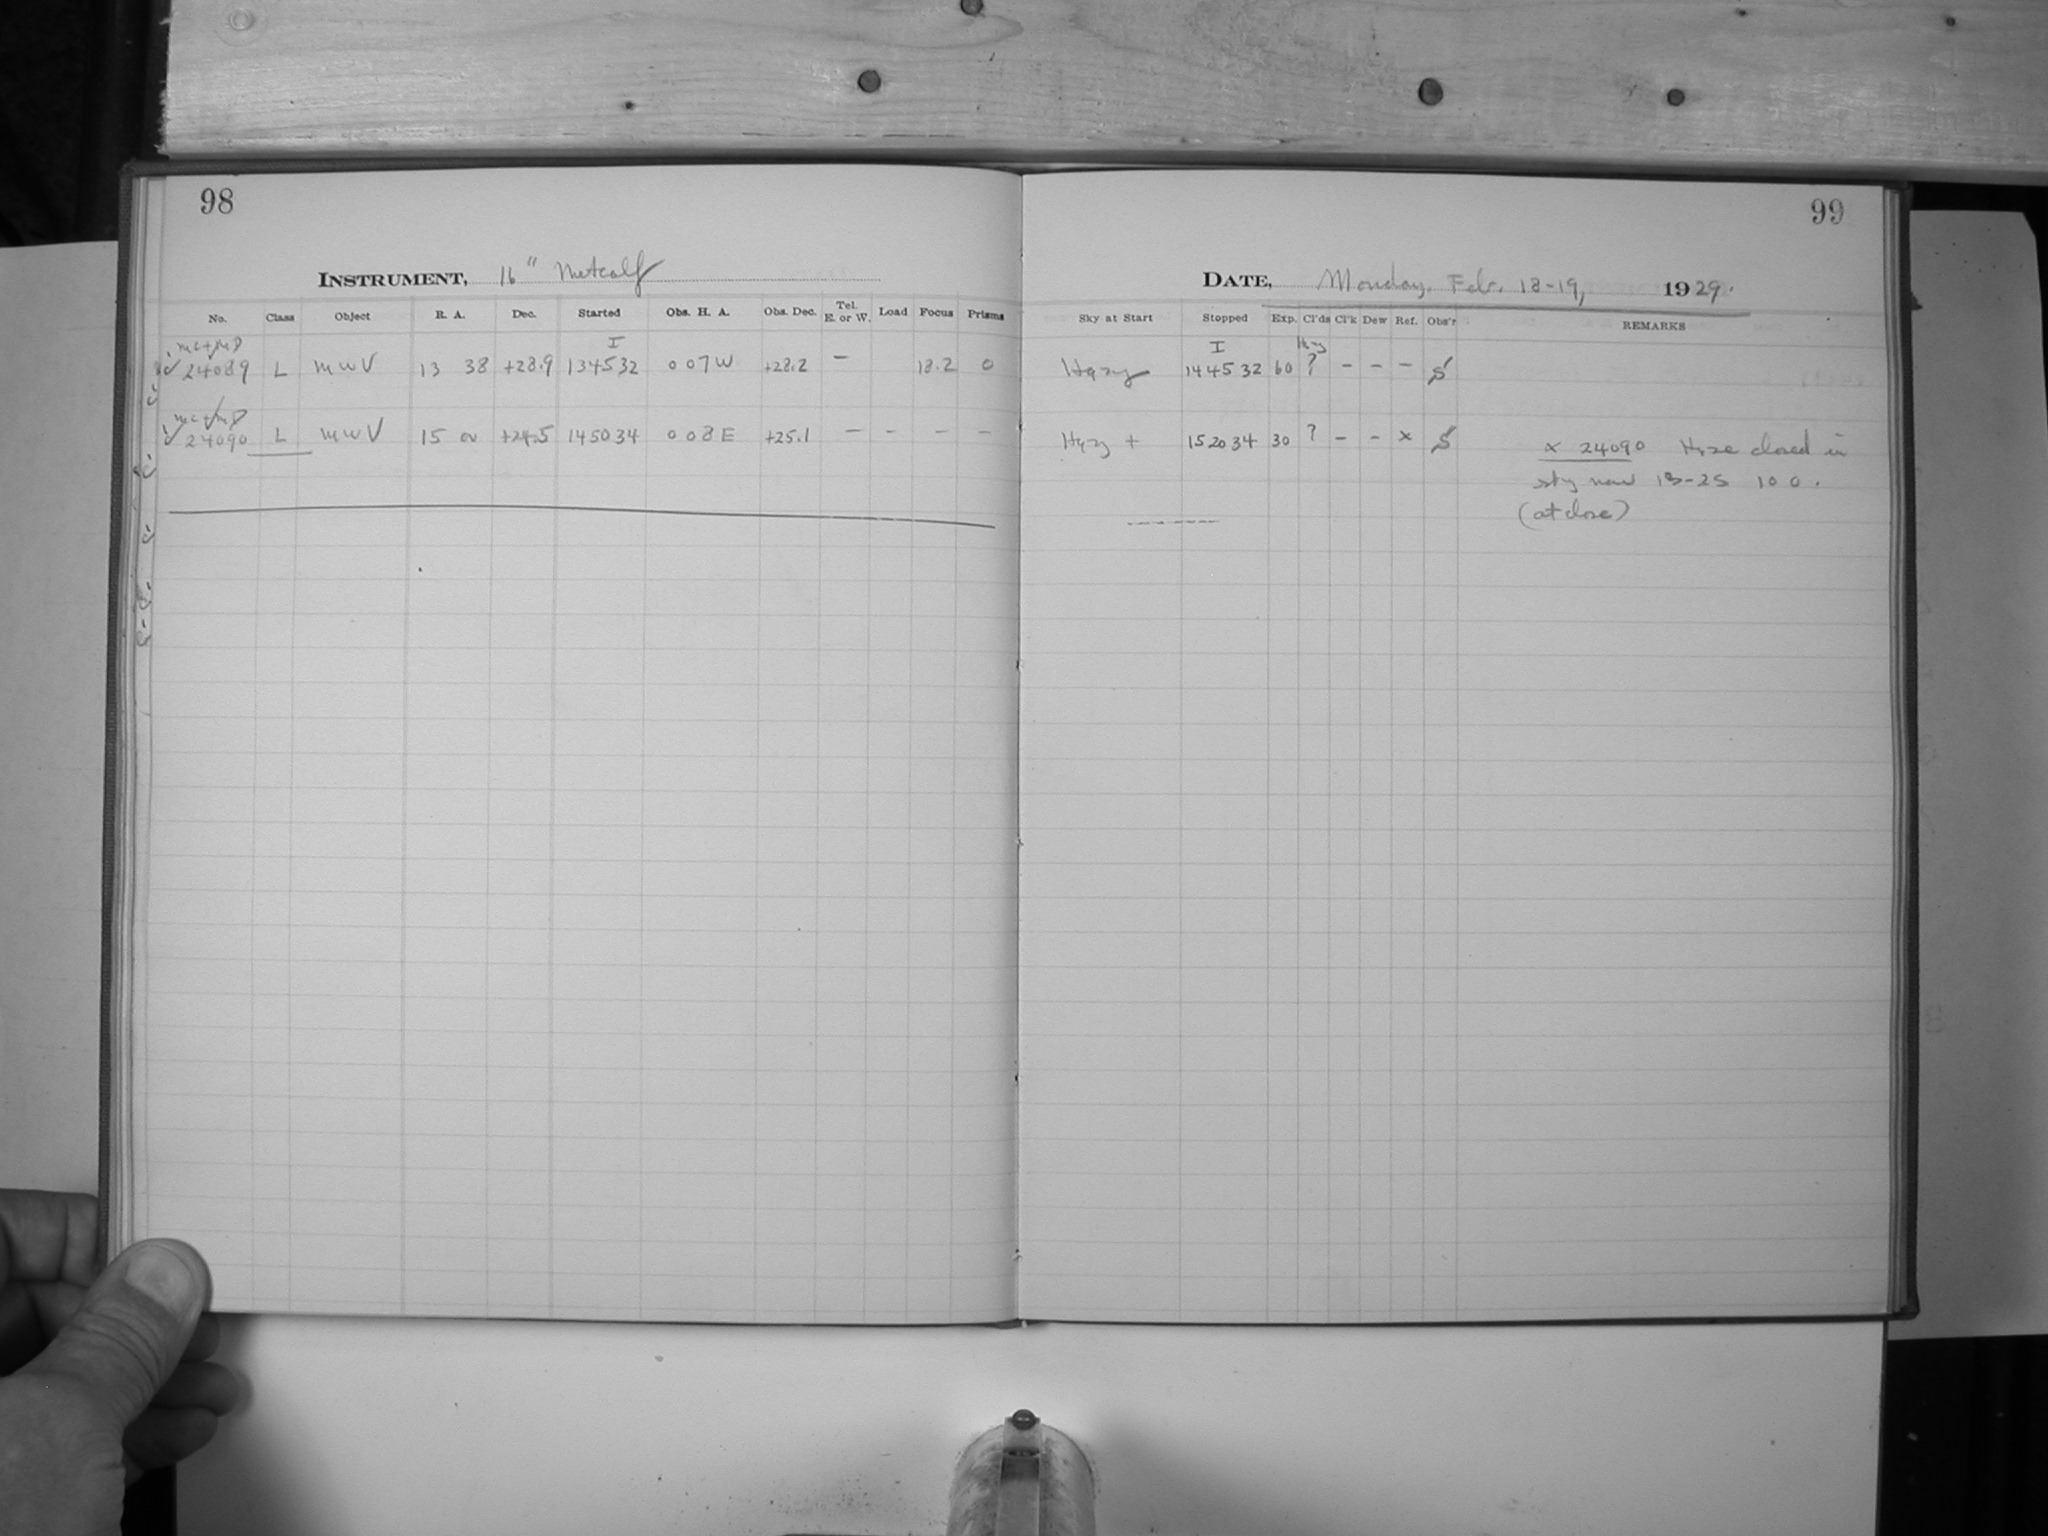 98
INSTRUMENT, 16" Metcalf
No. Class Object R. A. Dec. Started Obs. H. A. Obs. Dec. Tel. E. or W. Load Focus Prisms
I
MC+MD
24089 L MWV 13 38 +28.9 134532 0 07 W +28.2 – 18.2 0
MC+MD
24090 L MWV 15 00 +24.5 145034 0 08 E +25.1 – – – –
99
DATE, Monday, Feb. 18-19, 1929.
Sky at Start Stopped Exp. Cl'ds Cl'k Dew Ref. Obs'r REMARKS
I Hazy
Hazy 144532 60 ? – – – S
Hazy + 152034 30 ? – – x S
x 24090 Haze closed in
sky now 13-25 100.
(at close)